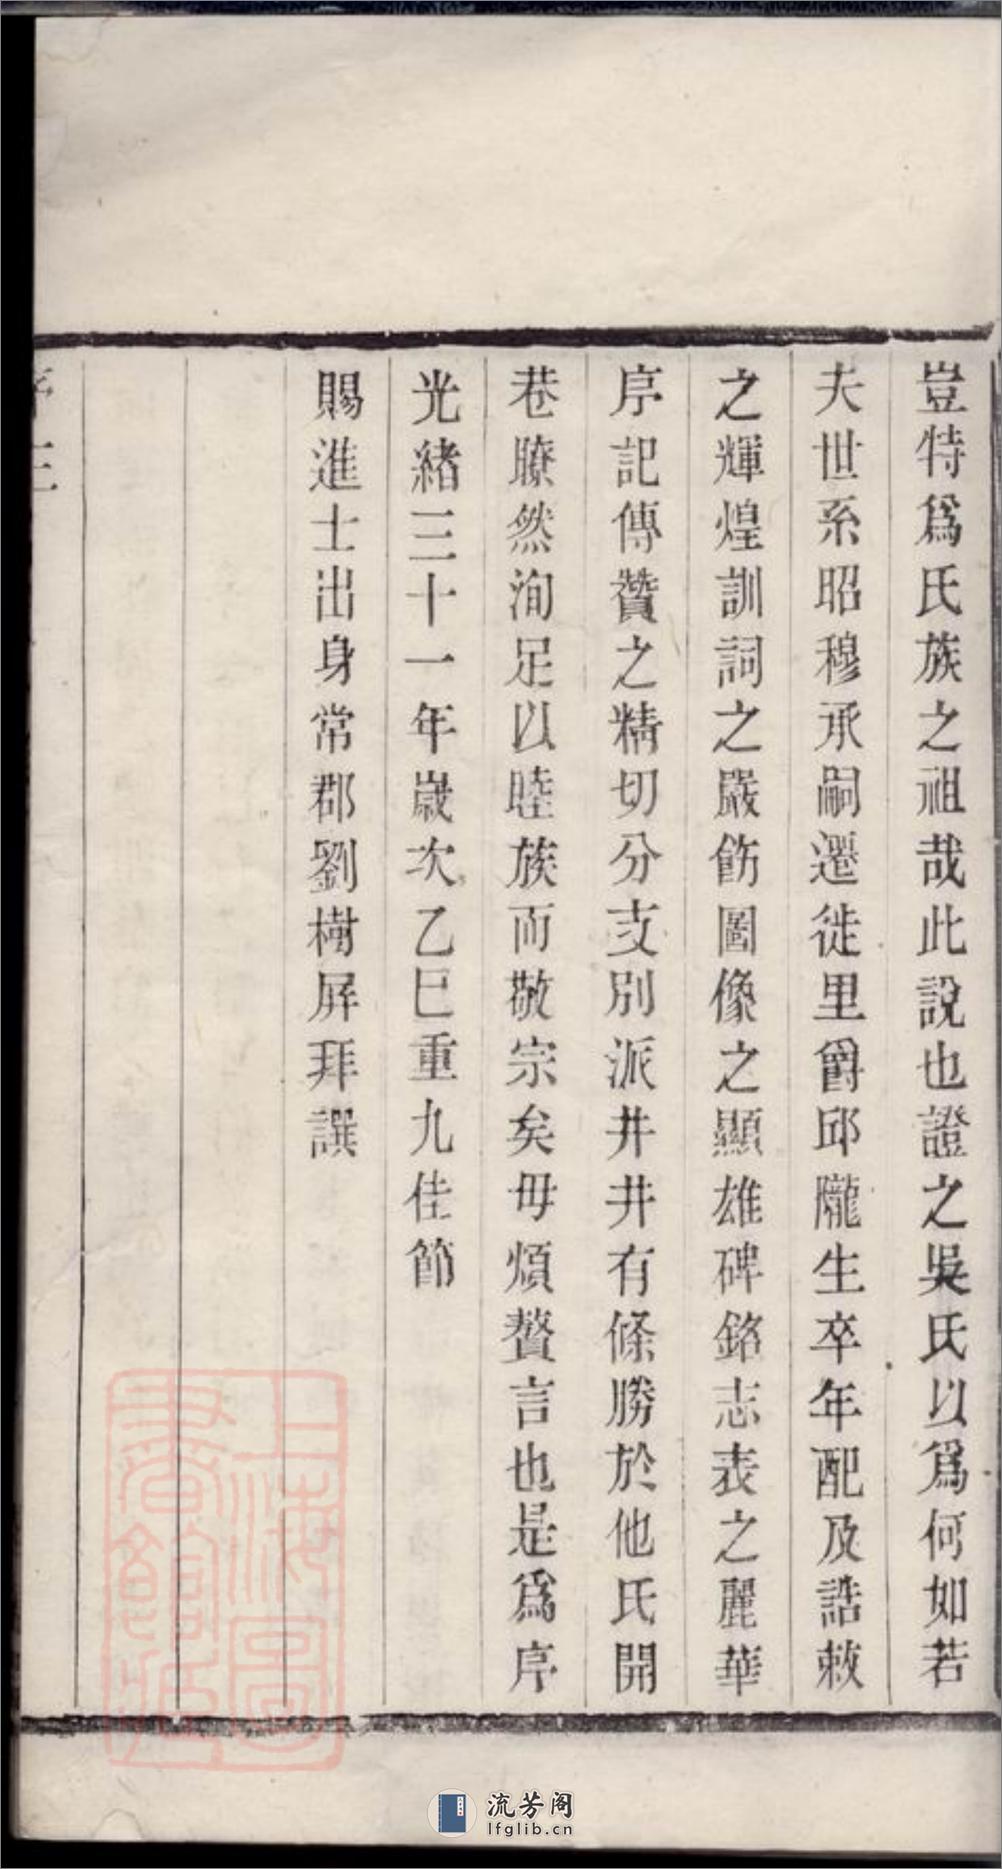 豈特爲氏族之祖哉此說也證之吳氏以爲何如若
夫世系昭穆承嗣遷徙里爵邱隴生卒年配及誥敕
之輝煌訓詞之嚴飭圖像之顯雄碑銘志表之麗華
序記傳贊之精切分支別派井井有條勝於他氏開
巷瞭然洵足以睦族而敬宗矣毋煩贅言也是爲序
光緒三十一年歲次乙巳重九佳節
賜進士出身常郡劉樹屏拜譔
序三
上海圖
書館藏
流芳阁
lfglib.cn